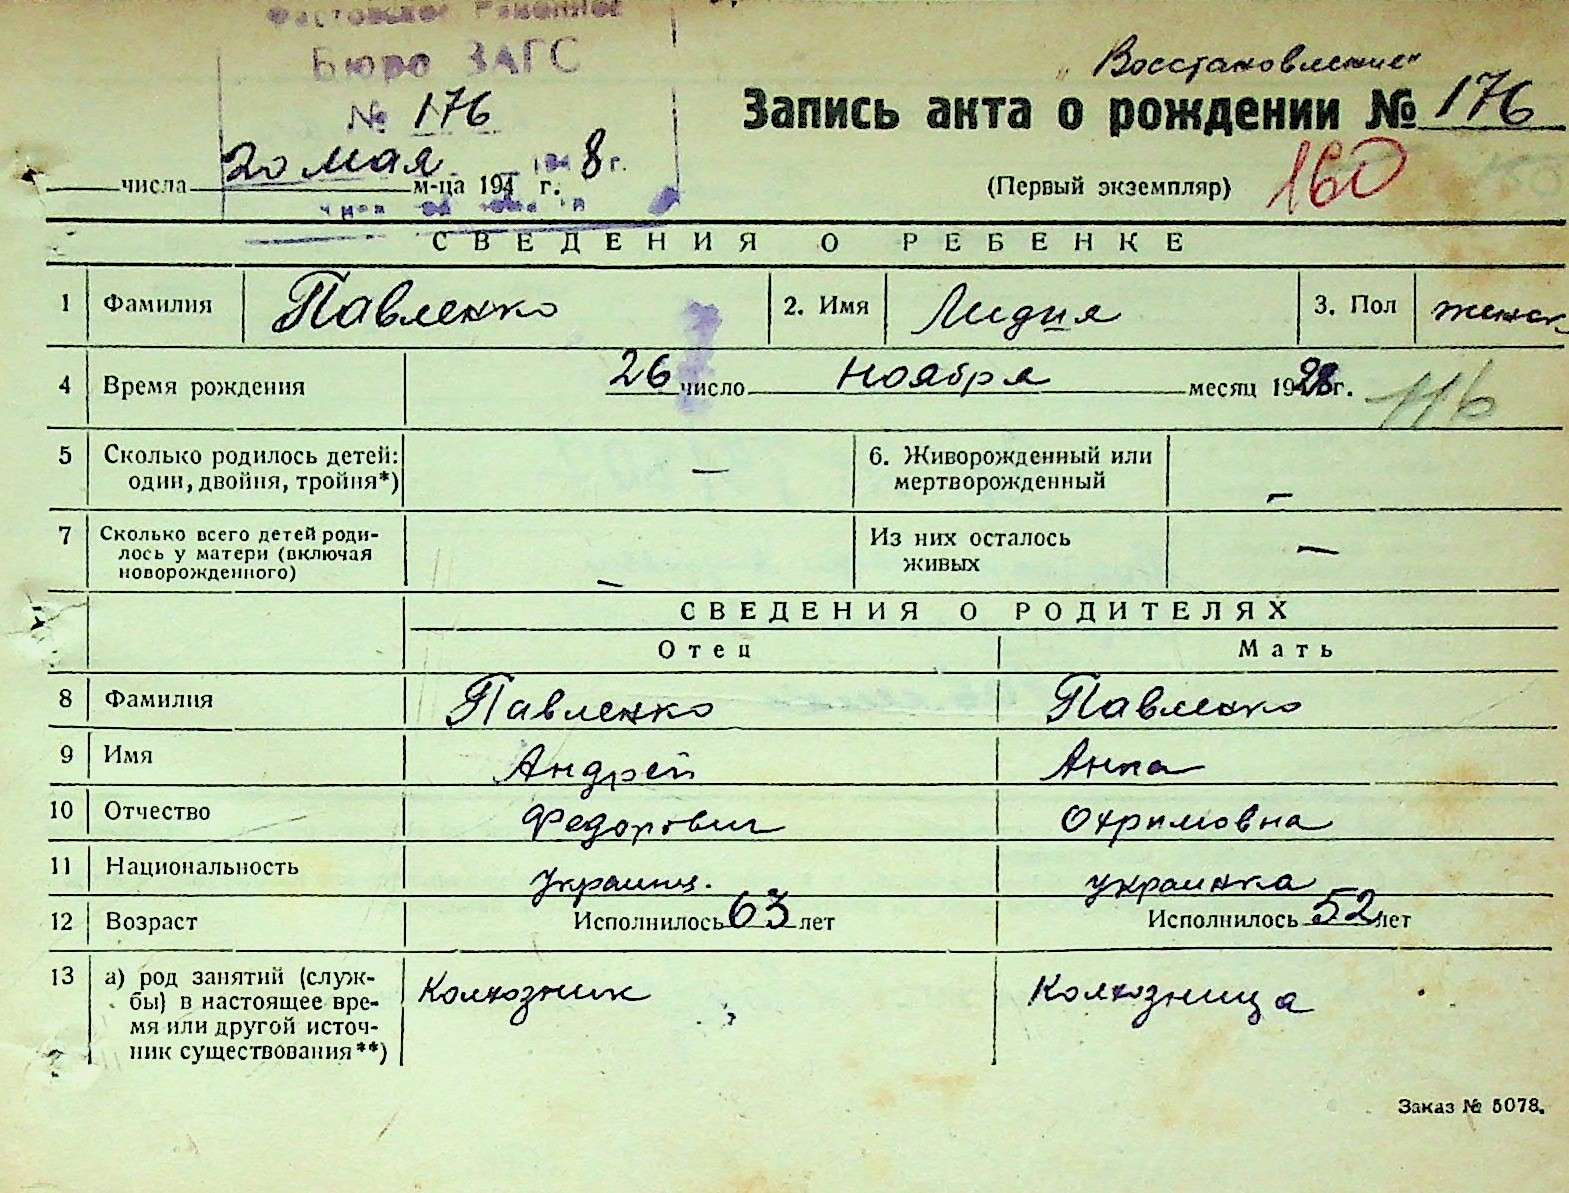 Фастовское Районное
Бюро ЗАГС
№ 176
"Восстановление"
Запись акта о рождении № 176
20 мая 1948 г.
числа м-ца 194 г.
(Первый экземпляр) 160 150
СВЕДЕНИЯ О РЕБЕНКЕ
1 Фамилия Павленко 2. Имя Лидия 3. Пол женск.
4 Время рождения 26 число ноября месяц 1928 г. 116
5 Сколько родилось детей: — 6. Живорожденный или –
один, двойня, тройня*) мертворожденный
7 Сколько всего детей роди- Из них осталось —
лось у матери (включая живых
новорожденного) –
СВЕДЕНИЯ О РОДИТЕЛЯХ
Отец Мать
8 Фамилия Павленко Павленко
9 Имя Андрей Анна
10 Отчество Федорович Охримовна
11 Национальность украинц. украинка
12 Возраст Исполнилось 63 лет Исполнилось 52 лет
13 а) род занятий (служ- Колхозник Колхозница
бы) в настоящее вре-
мя или другой источ-
ник существования**)
Заказ № 5078.